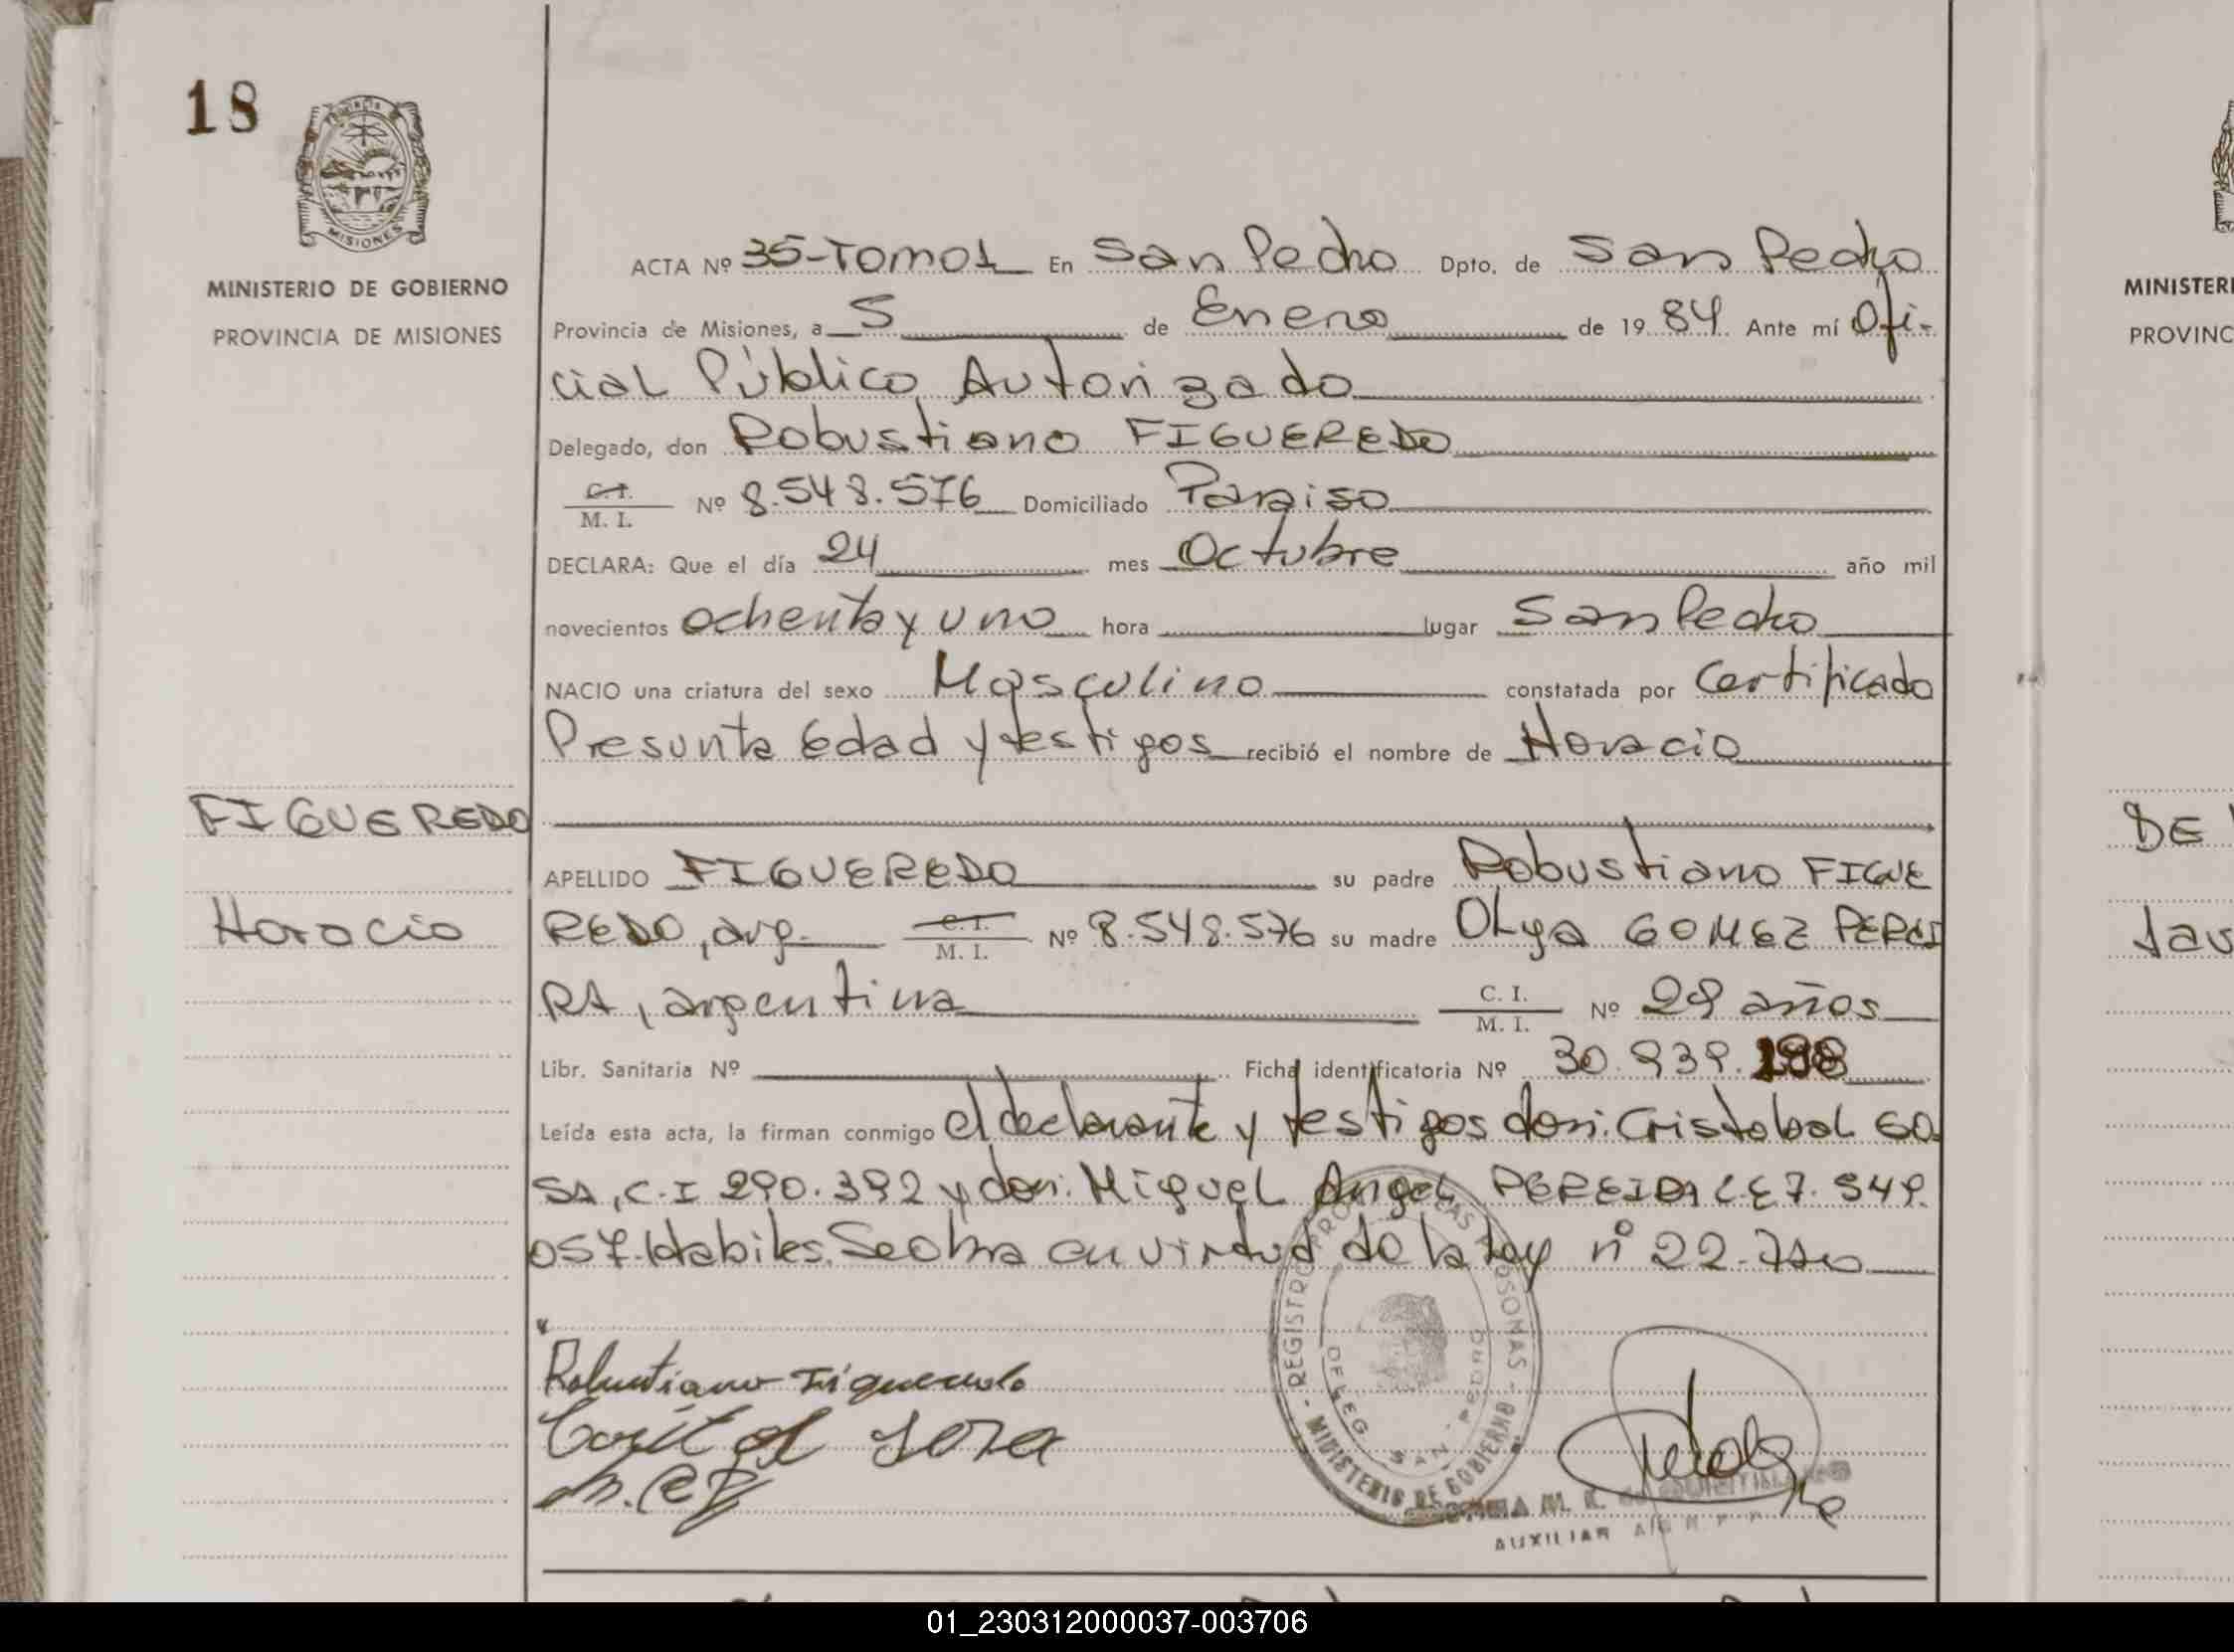 18
MISIONES
MINISTERIO DE GOBIERNO
PROVINCIA DE MISIONES
FIGUEREDO
Horacio
ACTA Nº 35-Tomo1 En San Pedro Dpto. de San Pedro
Provincia de Misiones, a 5 de Enero de 19 84 Ante mí Ofi-
cial Público Autorizado
Delegado, don Robustiano FIGUEREDO
C. I.
M. I. Nº 8.548.576 Domiciliado Paraiso
DECLARA: Que el día 24 mes Octubre año mil
novecientos ochenta y uno hora lugar San Pedro
NACIO una criatura del sexo Masculino constatada por Certificado
Presunta Edad y testigos recibió el nombre de Horacio
APELLIDO FIGUEREDO su padre Robustiano FIGUE
REDO, arg. C. I. M. I. Nº 8.548.576 su madre Olga GOMEZ PEREI
RA, argentina C. I. M. I. Nº 29 años
Libr. Sanitaria Nº Ficha identificatoria Nº 30.939.
Leída esta acta, la firman conmigo el declarante y testigos don: Cristobal
C.I 290.392 y don: Miguel Angel PEREIRA L.E 7.549.
057. Habiles. Se obra en virtud de la Ley nº
Robustiano Figueredo
REGISTRO PERSONAS - MINISTERIO DE GOBIERNO
DELEG. SAN PEDRO
AUXILIAR
MINISTERI
PROVINC
DE
01_230312000037-003706